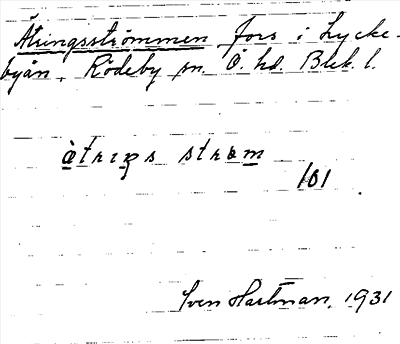 Åtringsströmmen fors i Lycke-
byån, Rödeby sn. Ö. hd. Blek. l.
àtrɪŋs strøm
101
Sven Hartman, 1931